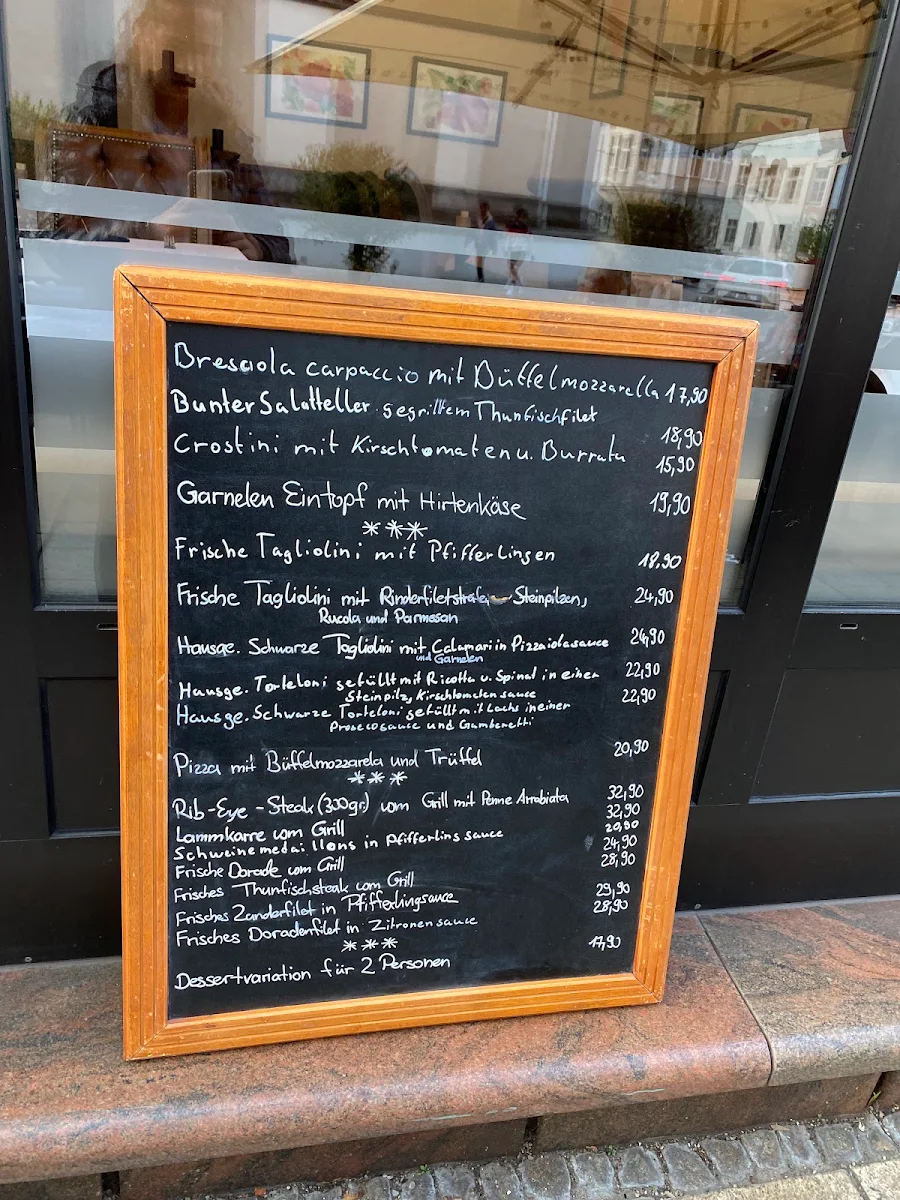 Bresaola carpaccio mit Büffelmozzarella 17,90
Bunter Salatteller. gegrilltem Thunfischfilet 18,90
Crostini mit Kirschtomaten u. Burrata 15,90
Garnelen Eintopf mit Hirtenkäse 19,90
***
Frische Tagliolini mit Pfifferlingen 18,90
Frische Tagliolini mit Rinderfiletstreifen Steinpilzen, 24,90
Rucola und Parmesan
Hausge. Schwarze Tagliolini mit Calamari in Pizzaiolasauce 24,90
und Garnelen
Hausge. Torteloni gefüllt mit Ricotta u. Spinat in einer 22,90
Steinpilz, Kirschtomaten sauce
Hausge. Schwarze Torteloni gefüllt mit Lachs in einer 22,90
Proseco sauce und Gamberetti
Pizza mit Büffelmozzarela und Trüffel 20,90
***
Rib-Eye-Steak (300gr.) vom Grill mit Penne Arrabiata 32,90
Lammkarre vom Grill 32,90
Schweinemedaillons in Pfifferling sauce 20,90
Frische Dorade vom Grill 24,90
Frisches Thunfischsteak vom Grill 28,90
Frisches Zanderfilet in Pfifferlingsauce 29,90
Frisches Doradenfilet in Zitronensauce 28,90
***
Dessertvariation für 2 Personen 17,90